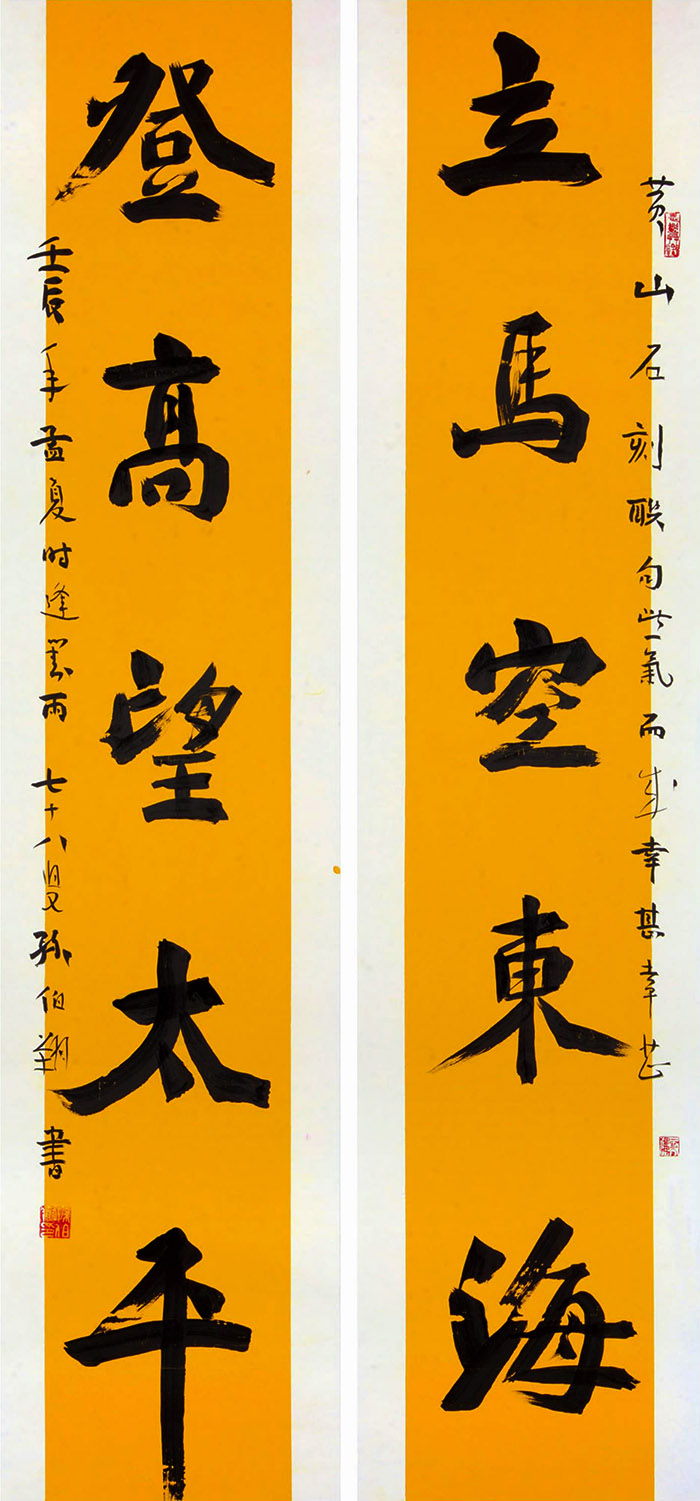 立馬空東海
登高望太平
黄山石刻联句此一氣而成幸甚幸甚
壬辰年孟夏时逢暑雨七十八叟孙伯翔书